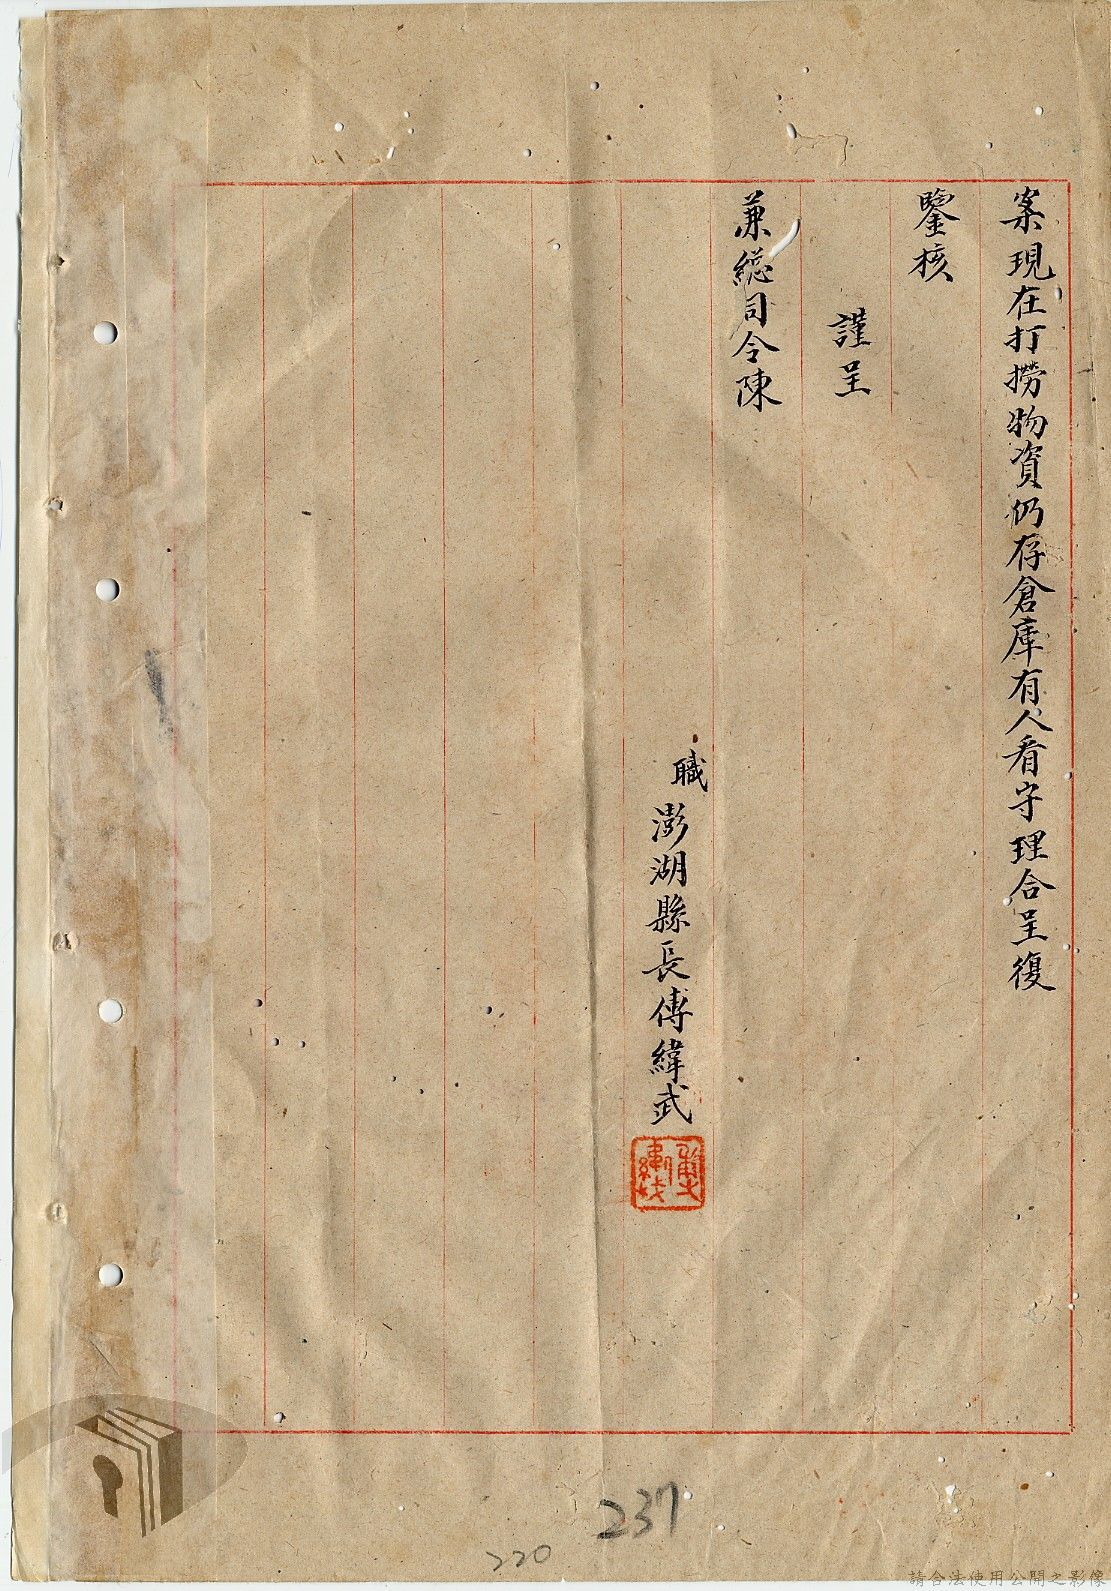 案現在打撈物資仍存倉庫有人看守理合呈復
鑒核
謹呈
兼總司令陳
職
澎湖縣長傅緯武
237
220
請合法使用公開之影像